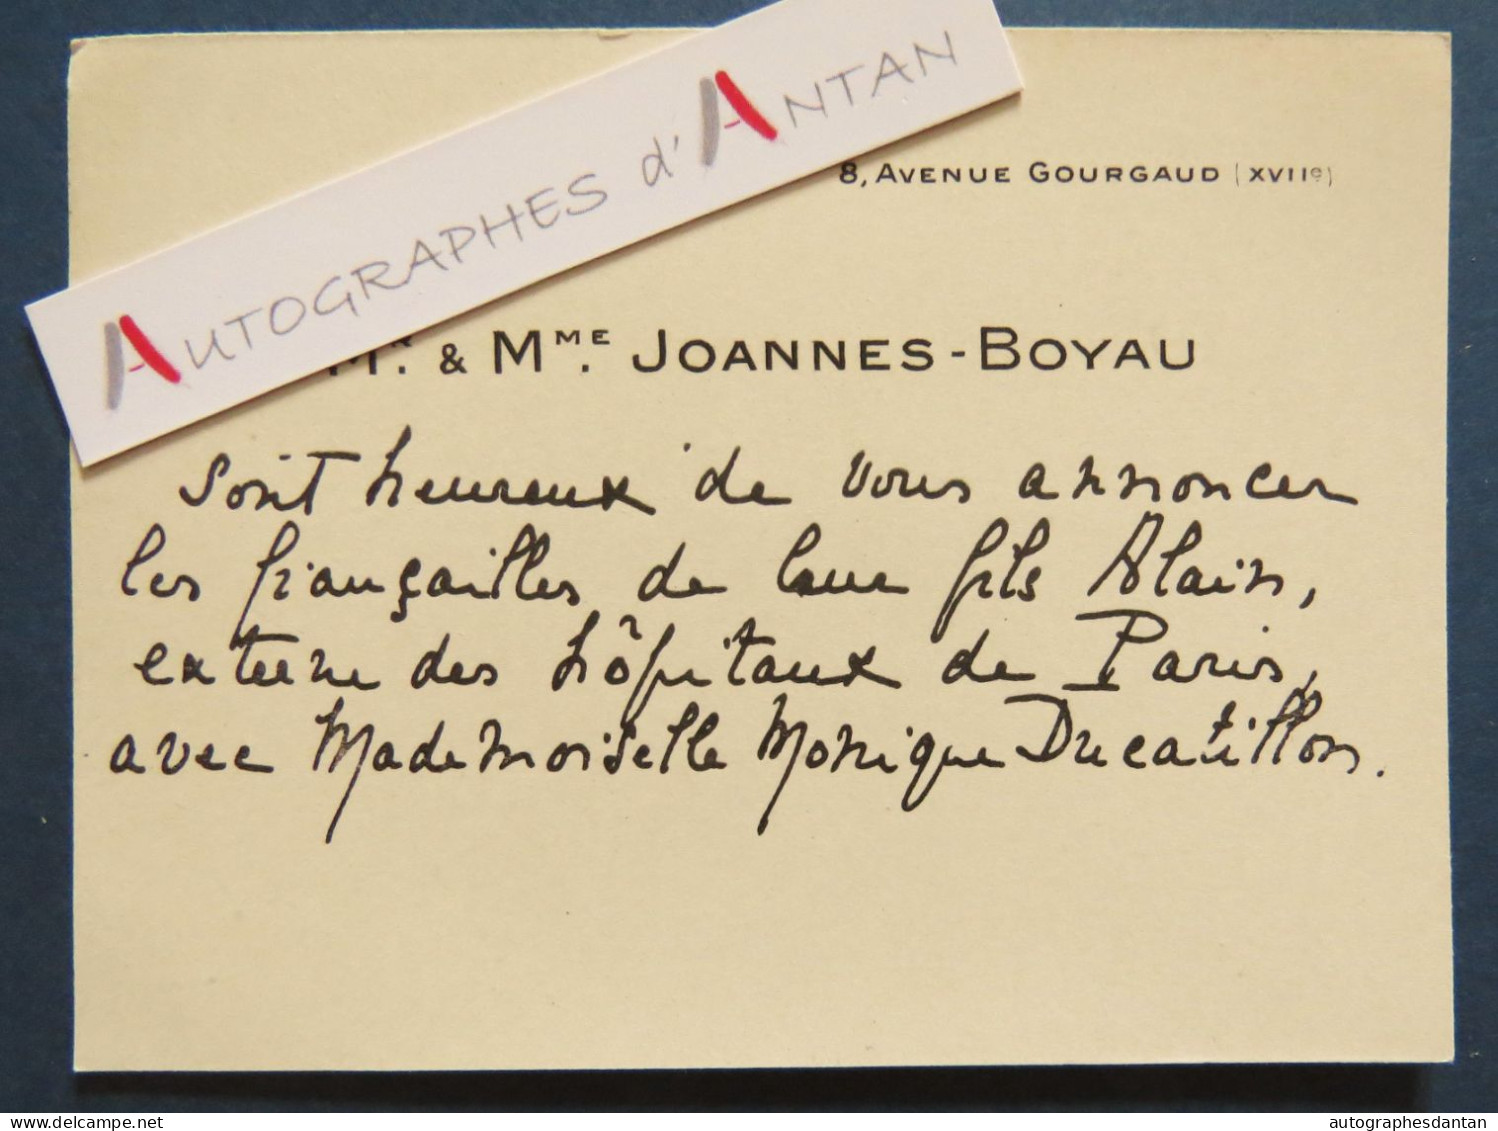 AUTOGRAPHES d'ANTAN
8, AVENUE GOURGAUD (XVIIe)
Mr. & MME. JOANNES-BOYAU
sont heureux de vous annoncer
les fiançailles de leur fils Alain,
externe des hôpitaux de Paris,
avec Mademoiselle Monique Ducatillon.
delcampe.net
autographesdantan